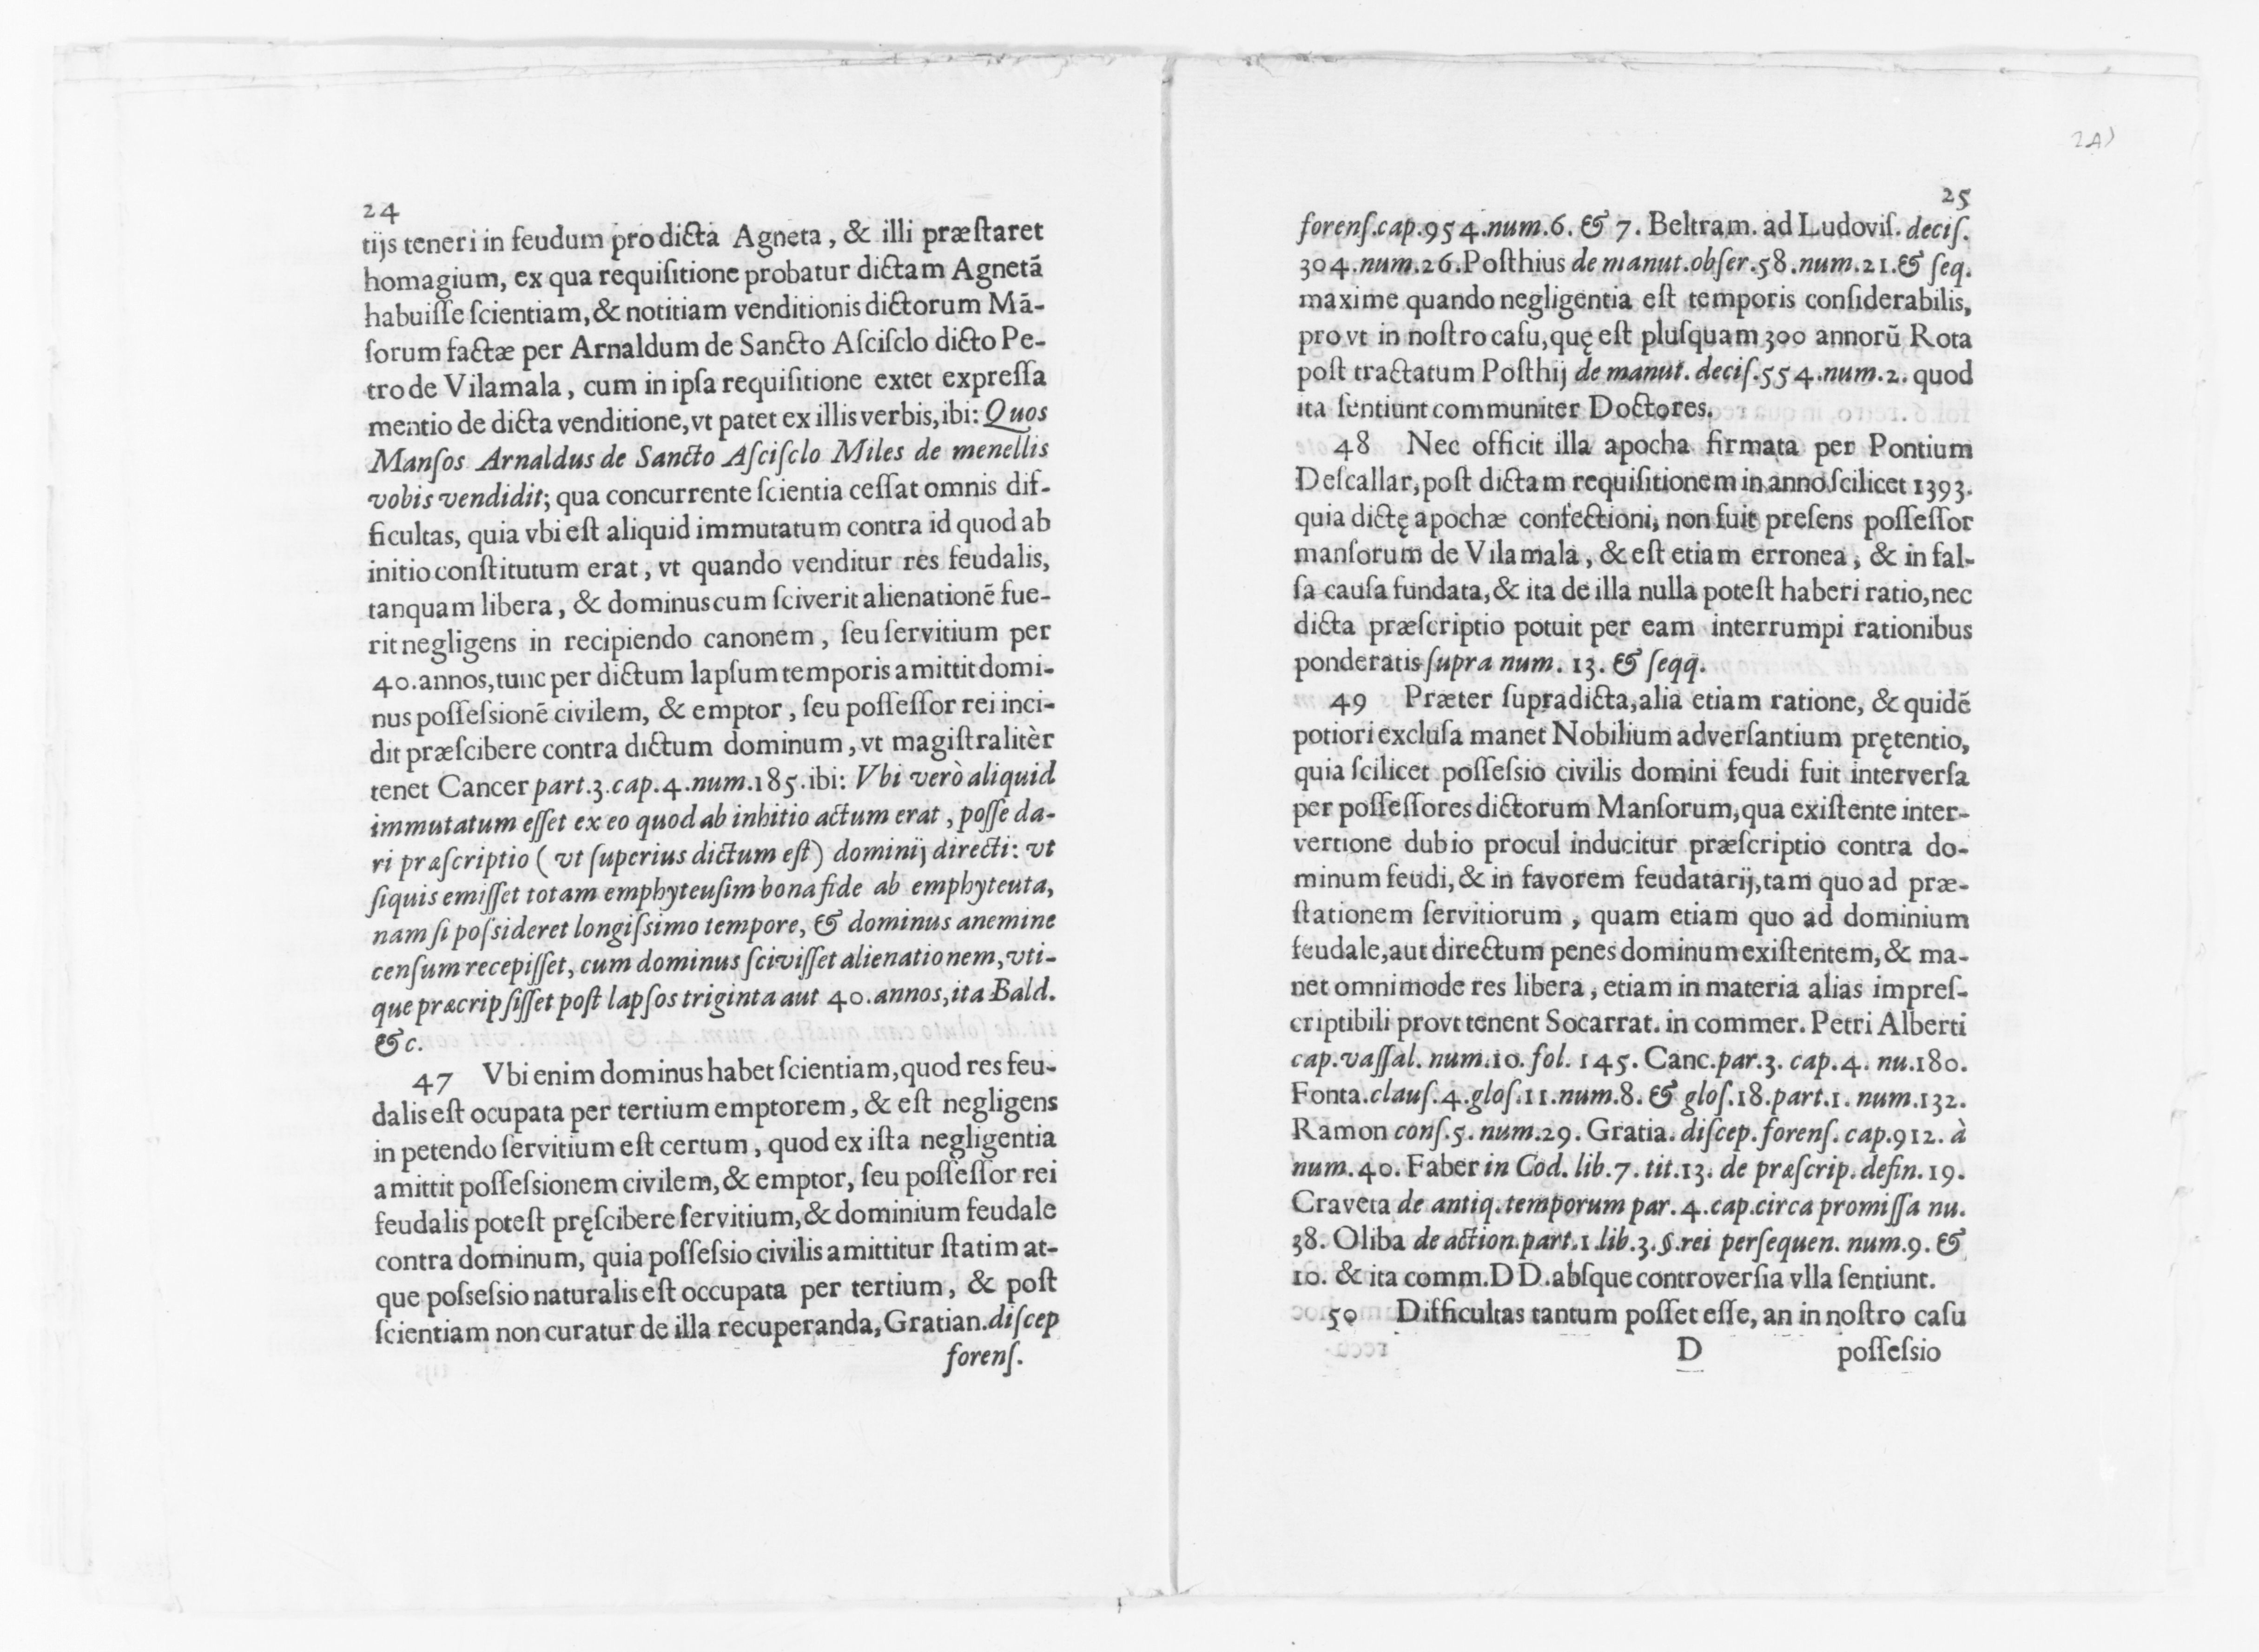 24
tijs teneri in feudum pro dicta Agneta, & illi præſtaret
homagium, ex qua requiſitione probatur dictam Agnetã
habuiſſe ſcientiam, & notitiam venditionis dictorum Mã-
ſorum factæ per Arnaldum de Sancto Aſciſclo dicto Pe-
tro de Vilamala, cum in ipſa requiſitione extet expreſſa
mentio de dicta venditione, vt patet ex illis verbis, ibi: Quos
Manſos Arnaldus de Sancto Aſciſclo Miles de menellis
vobis vendidit; qua concurrente ſcientia ceſſat omnis dif-
ficultas, quia vbi eſt aliquid immutatum contra id quod ab
initio conſtitutum erat, vt quando venditur res feudalis,
tanquam libera, & dominus cum ſciverit alienationẽ fue-
rit negligens in recipiendo canonem, ſeu ſervitium per
40. annos, tunc per dictum lapſum temporis amittit domi-
nus poſſeſsionẽ civilem, & emptor, ſeu poſſeſſor rei inci-
dit præſcibere contra dictum dominum, vt magiſtralitèr
tenet Cancer part. 3. cap. 4. num. 185. ibi: Vbi verò aliquid
immutatum eſſet ex eo quod ab inhitio actum erat, poſſe da-
ri præſcriptio (vt ſuperius dictum eſt) dominij directi: vt
ſiquis emiſſet totam emphyteuſim bona fide ab emphyteuta,
nam ſi poſsideret longiſsimo tempore, & dominus anemine
cenſum recepiſſet, cum dominus ſciviſſet alienationem, vti-
que præcripſiſſet poſt lapſos triginta aut 40. annos, ita Bald.
&c.
47 Vbi enim dominus habet ſcientiam, quod res feu-
dalis eſt ocupata per tertium emptorem, & eſt negligens
in petendo ſervitium eſt certum, quod ex iſta negligentia
amittit poſſeſsionem civilem, & emptor, ſeu poſſeſſor rei
feudalis poteſt pręſcibere ſervitium, & dominium feudale
contra dominum, quia poſſeſsio civilis amittitur ſtatim at-
que poſseſsio naturalis eſt occupata per tertium, & poſt
ſcientiam non curatur de illa recuperanda, Gratian. diſcep
forenſ.
25
forenſ. cap. 954. num. 6. & 7. Beltram. ad Ludoviſ. deciſ.
304. num. 26. Poſthius de manut. obſer. 58. num. 21. & ſeq.
maxime quando negligentia eſt temporis conſiderabilis,
pro vt in noſtro caſu, quę eſt pluſquam 300 annorũ Rota
poſt tractatum Poſthij de manut. deciſ. 554. num. 2. quod
ita ſentiunt communiter Doctores.
48 Nec officit illa apocha firmata per Pontium
Deſcallar, poſt dictam requiſitionem in anno ſcilicet 1393.
quia dictę apochæ confectioni, non fuit preſens poſſeſſor
manſorum de Vilamala, & eſt etiam erronea, & in fal-
ſa cauſa fundata, & ita de illa nulla poteſt haberi ratio, nec
dicta præſcriptio potuit per eam interrumpi rationibus
ponderatis ſupra num. 13. & ſeqq.
49 Præter ſupradicta, alia etiam ratione, & quidẽ
potiori excluſa manet Nobilium adverſantium prętentio,
quia ſcilicet poſſeſsio civilis domini feudi fuit interverſa
per poſſeſſores dictorum Manſorum, qua exiſtente inter-
vertione dubio procul inducitur præſcriptio contra do-
minum feudi, & in favorem feudatarij, tam quo ad præ-
ſtationem ſervitiorum, quam etiam quo ad dominium
feudale, aut directum penes dominum exiſtentem, & ma-
net omnimode res libera, etiam in materia alias impreſ-
criptibili provt tenent Socarrat. in commer. Petri Alberti
cap. vaſſal. num. 10. fol. 145. Canc. par. 3. cap. 4. nu. 180.
Fonta. clauſ. 4. gloſ. 11. num. 8. & gloſ. 18. part. 1. num. 132.
Ramon conſ. 5. num. 29. Gratia. diſcep. forenſ. cap. 912. à
num. 40. Faber in Cod. lib. 7. tit. 13. de præſcrip. defin. 19.
Craveta de antiq. temporum par. 4. cap. circa promiſſa nu.
38. Oliba de action. part. 1. lib. 3. §. rei perſequen. num. 9. &
10. & ita comm. DD. abſque controverſia vlla ſentiunt.
50 Difficultas tantum poſſet eſſe, an in noſtro caſu
D poſſeſsio